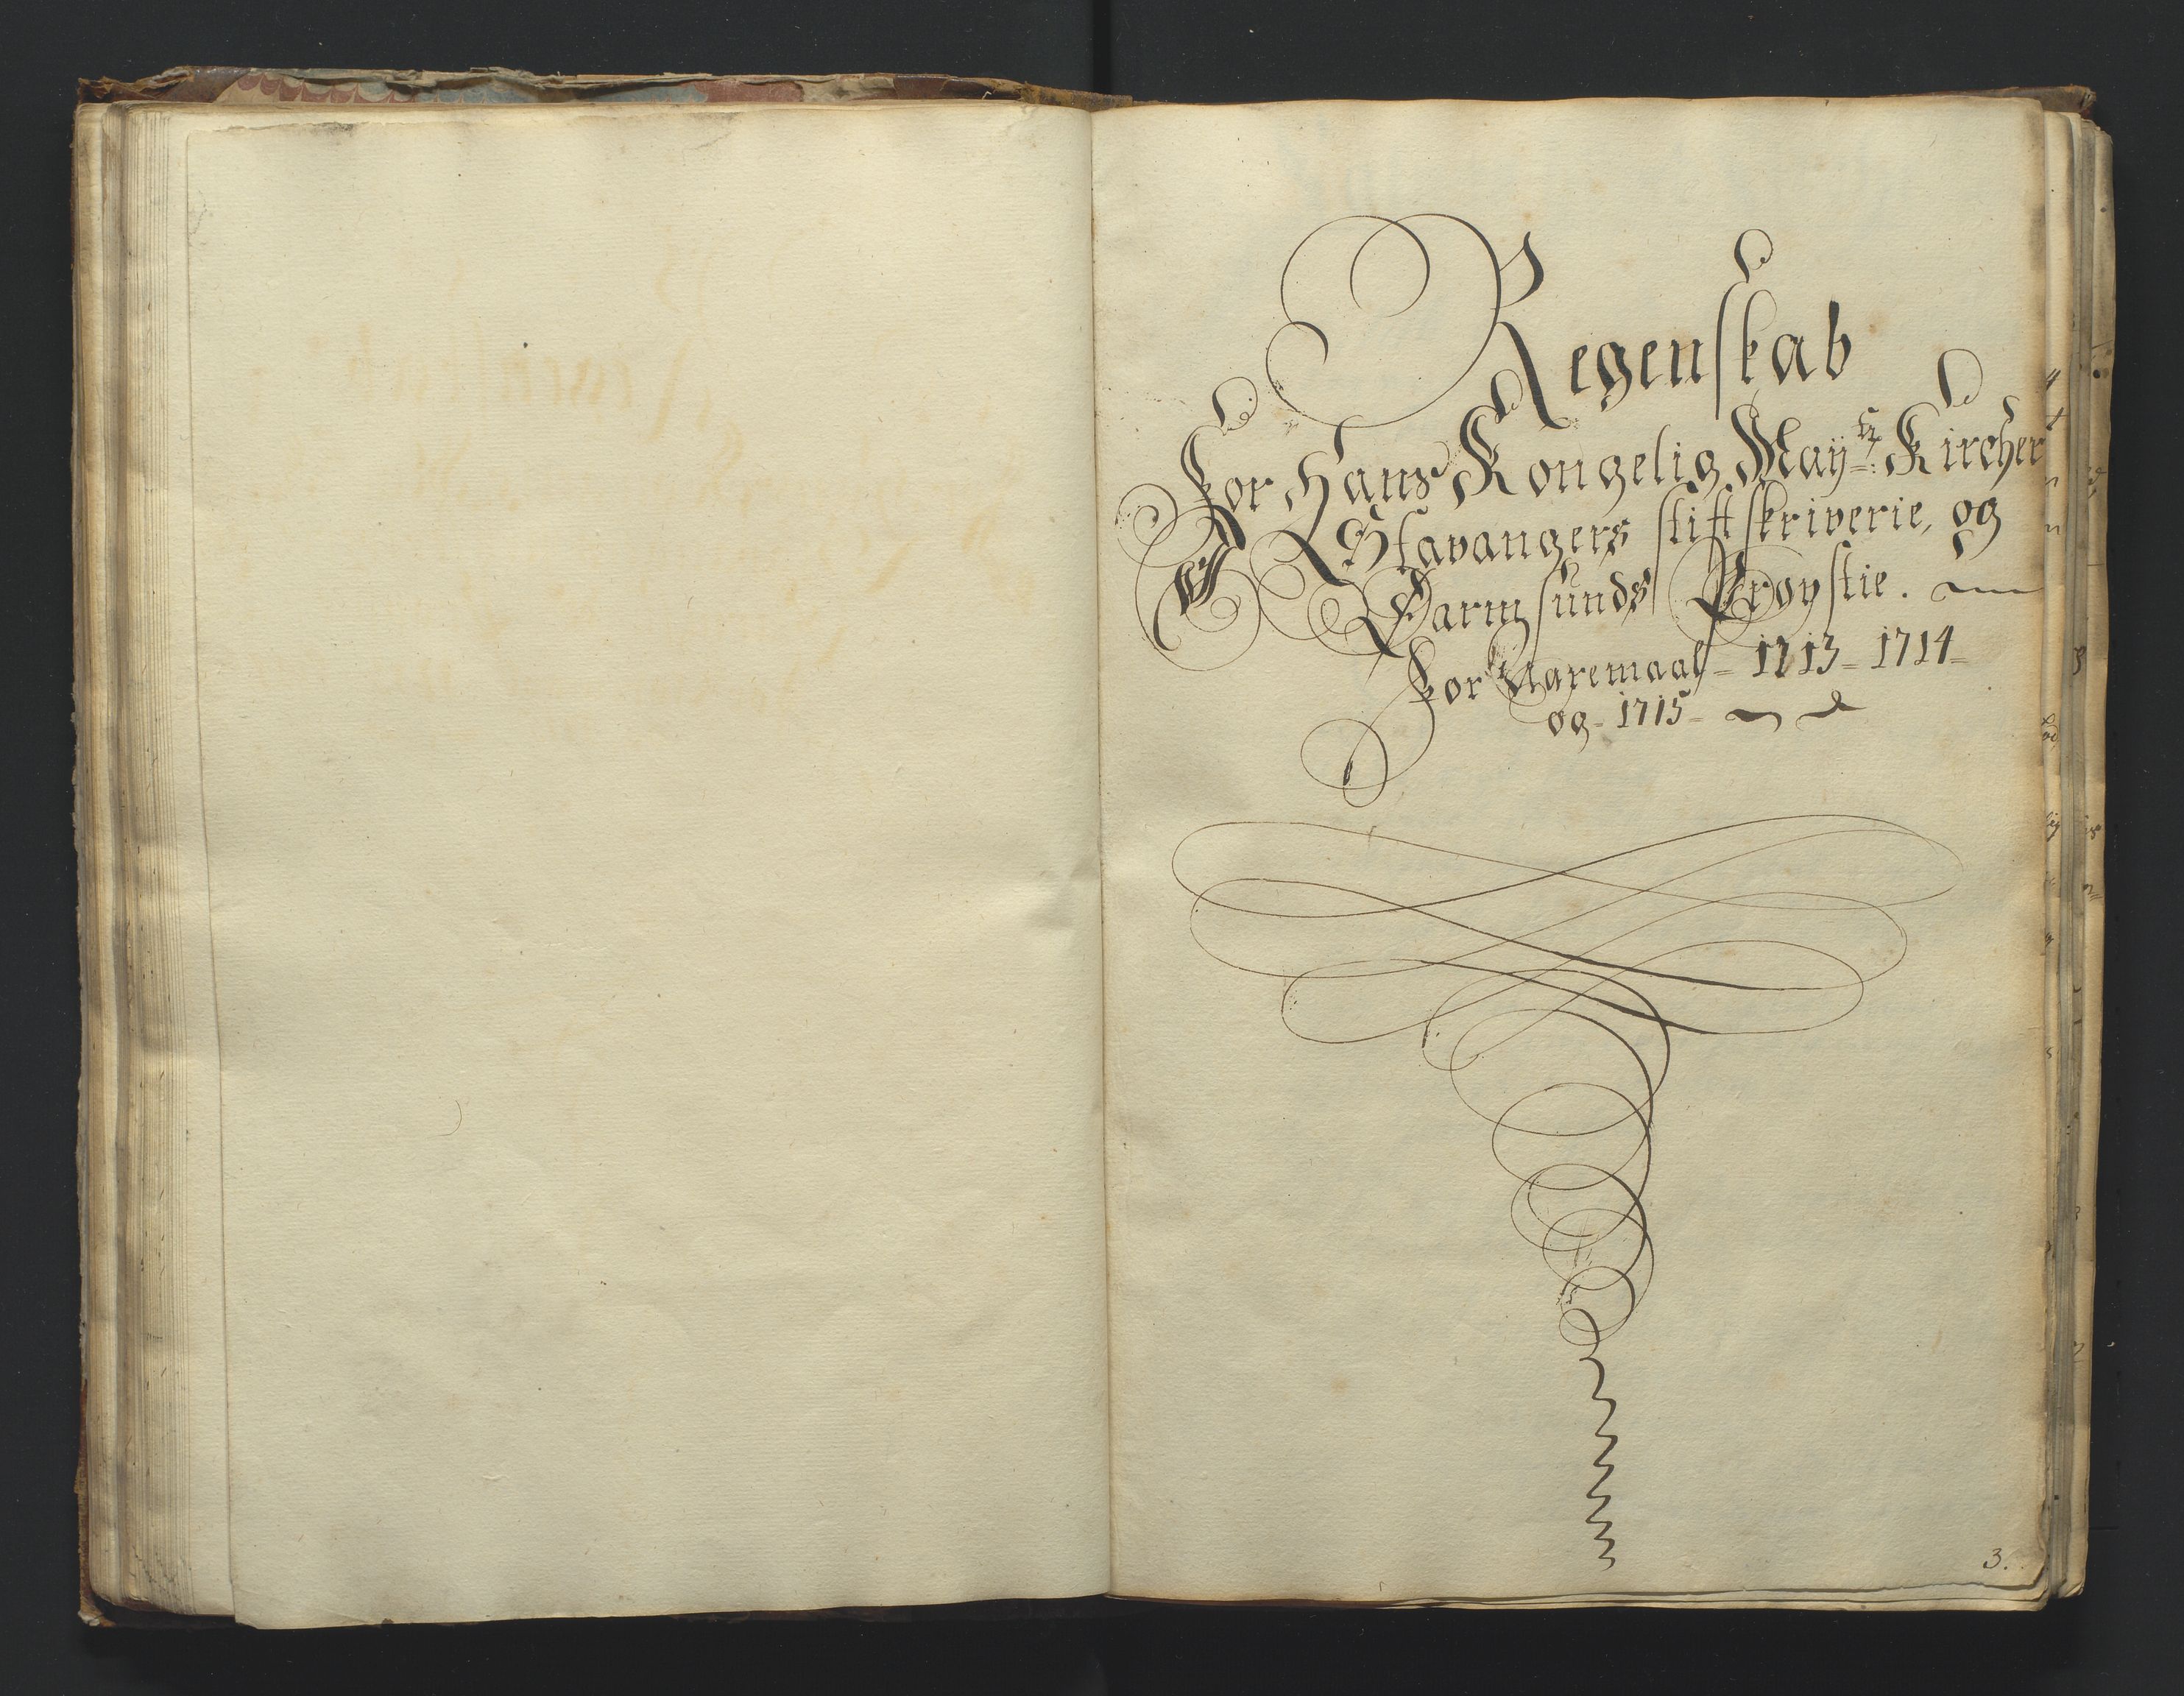 Regenskab
For Hans Kongelig Maÿtz: Kircher
I Stavangers stiftskriverie, og
Karmsunds Provstie.
For Aaremaal 1713 1714
og 1715
3.